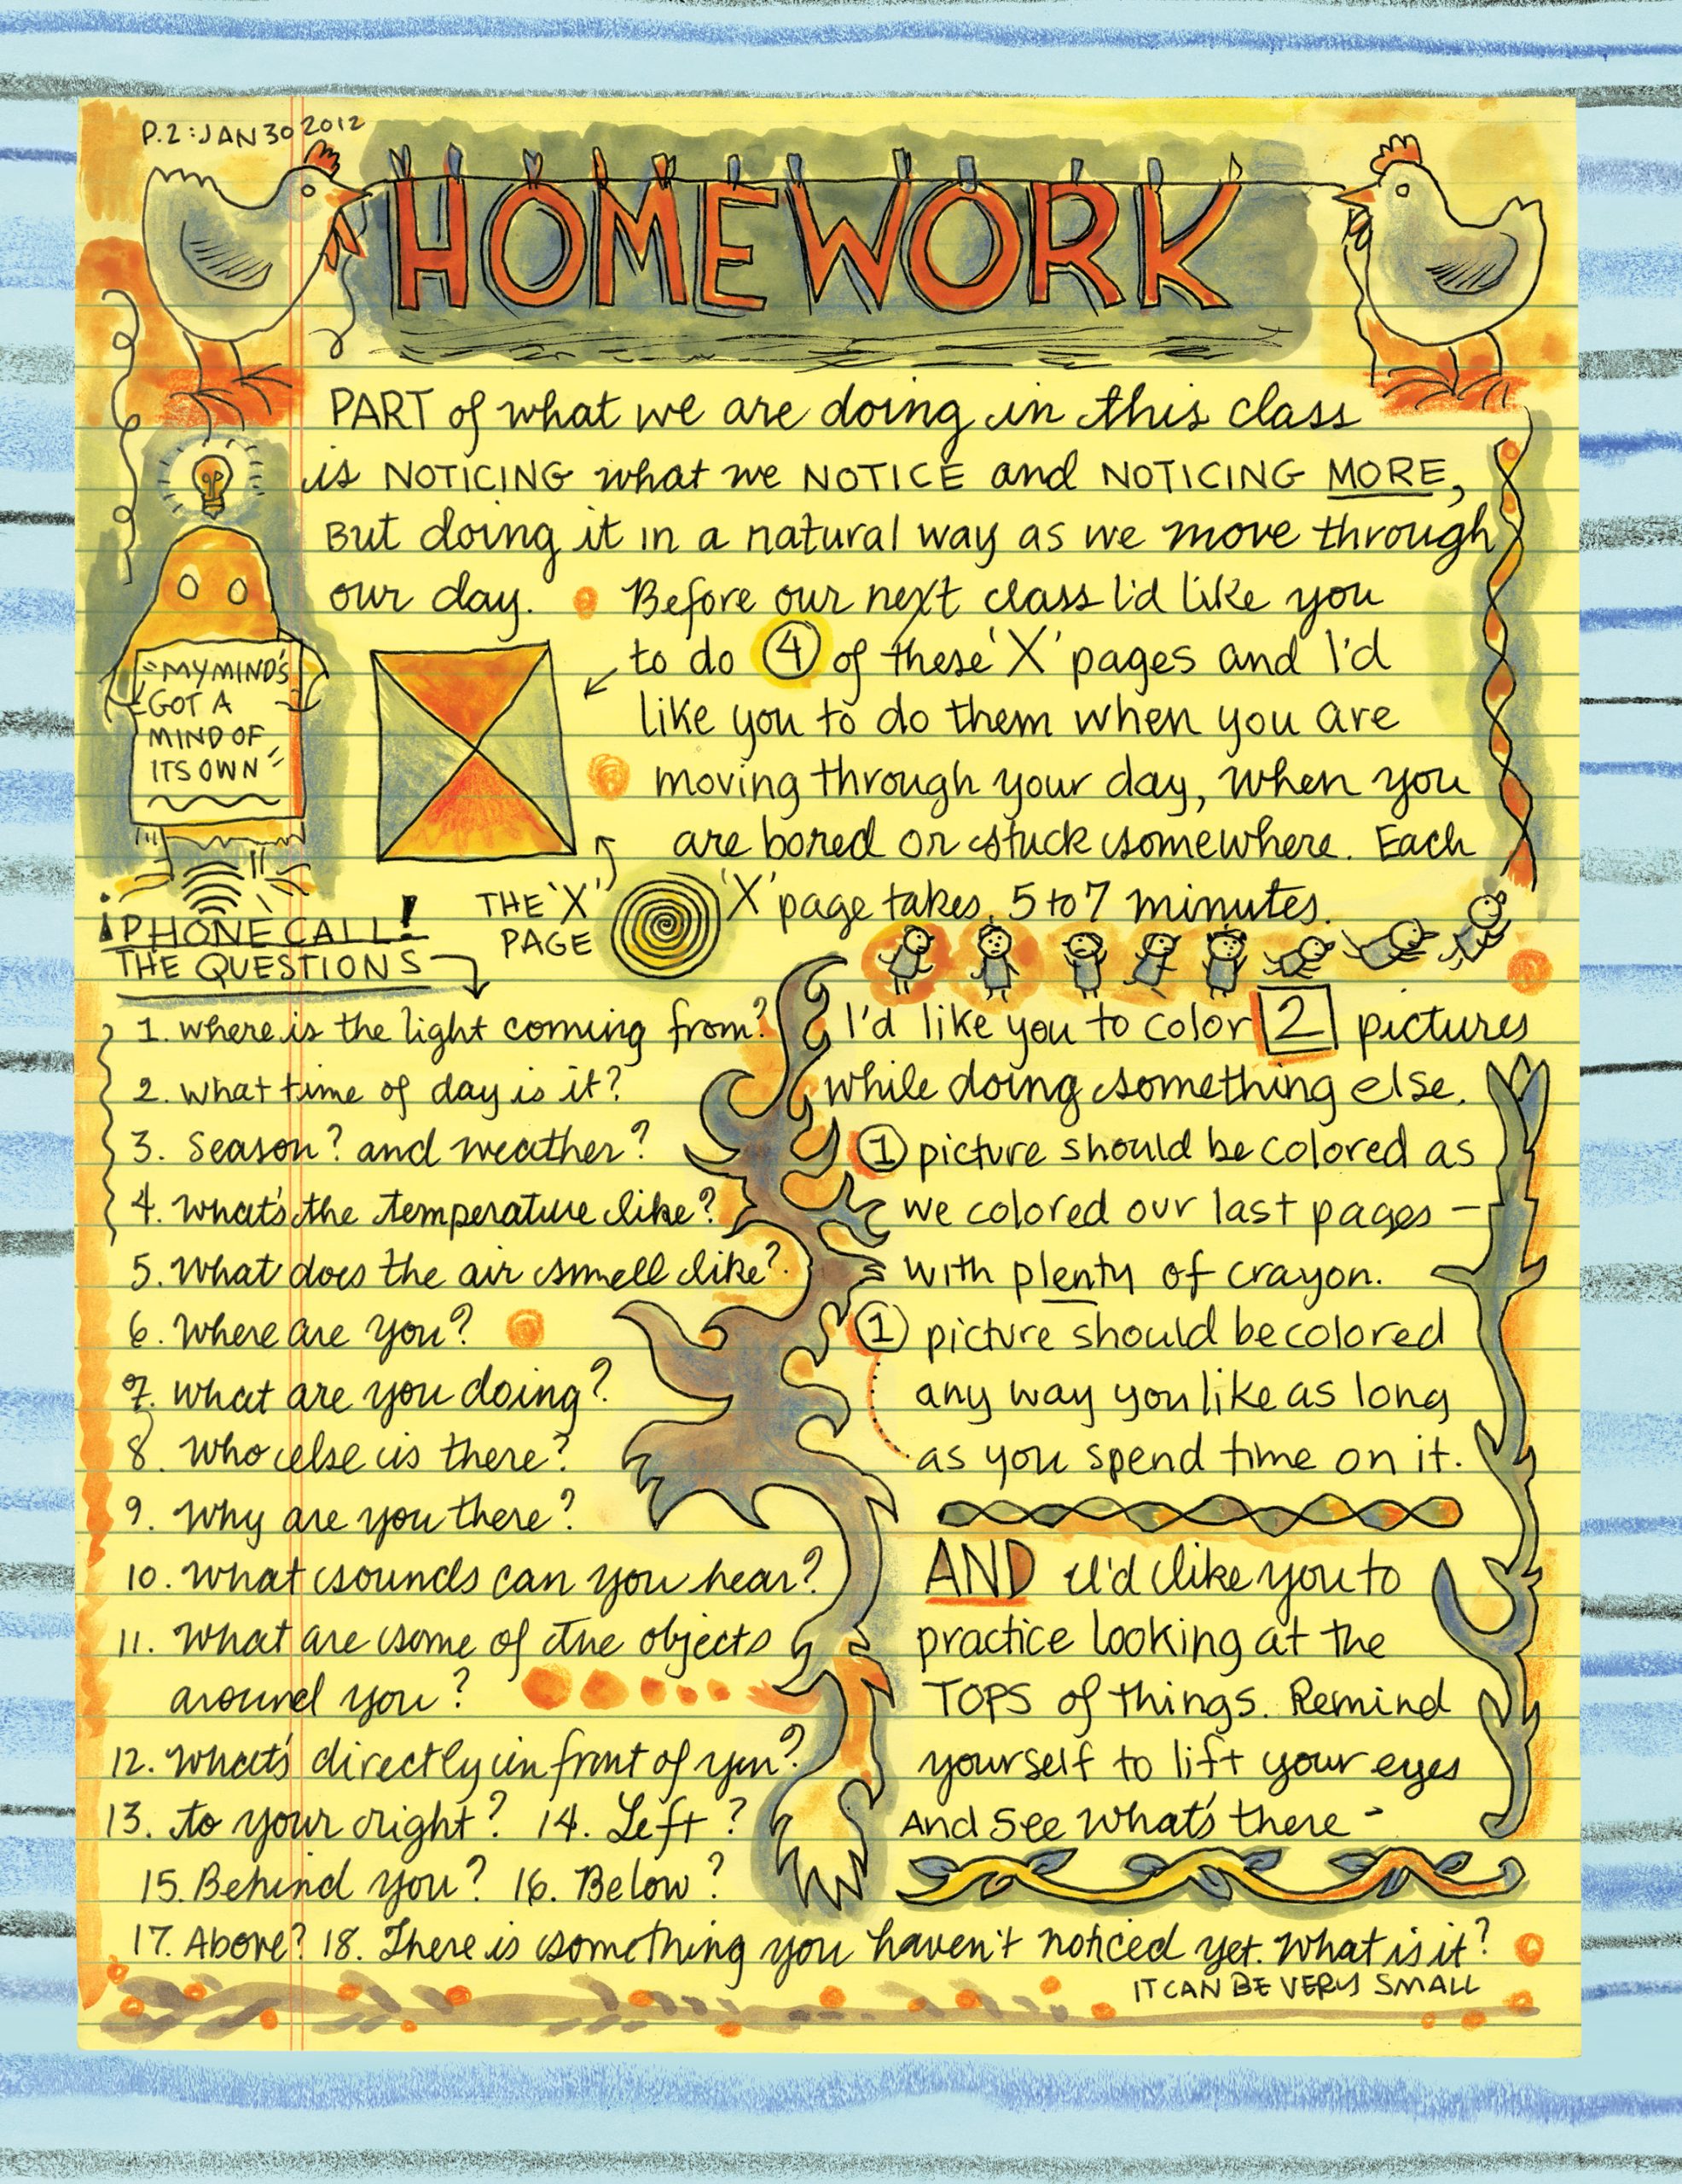 P.2: JAN 30 2012
HOMEWORK
PART of what we are doing in this class
is NOTICING what we NOTICE and NOTICING MORE,
But doing it in a natural way as we move through
our day. Before our next class I'd like you
to do 4 of these 'X' pages and I'd
like you to do them when you are
moving through your day, when you
are bored or stuck somewhere. Each
'X' page takes 5 to 7 minutes.
"MY MIND'S
GOT A
MIND OF
ITS OWN"
THE 'X'
PAGE
¡PHONE CALL!
THE QUESTIONS
1. where is the light coming from?
2. What time of day is it?
3. Season? and weather?
4. What's the temperature like?
5. What does the air smell like?
6. Where are you?
7. what are you doing?
8. Who else is there?
9. Why are you there?
10. What sounds can you hear?
11. What are some of the objects
around you?
12. What's directly in front of you?
13. to your right? 14. Left?
15. Behind you? 16. Below?
17. Above? 18. There is something you haven't noticed yet. What is it?
IT CAN BE VERY SMALL
I'd like you to color 2 pictures
while doing something else.
1 picture should be colored as
we colored our last pages —
with plenty of crayon.
1 picture should be colored
any way you like as long
as you spend time on it.
AND I'd like you to
practice looking at the
TOPS of things. Remind
yourself to lift your eyes
And See what's there -